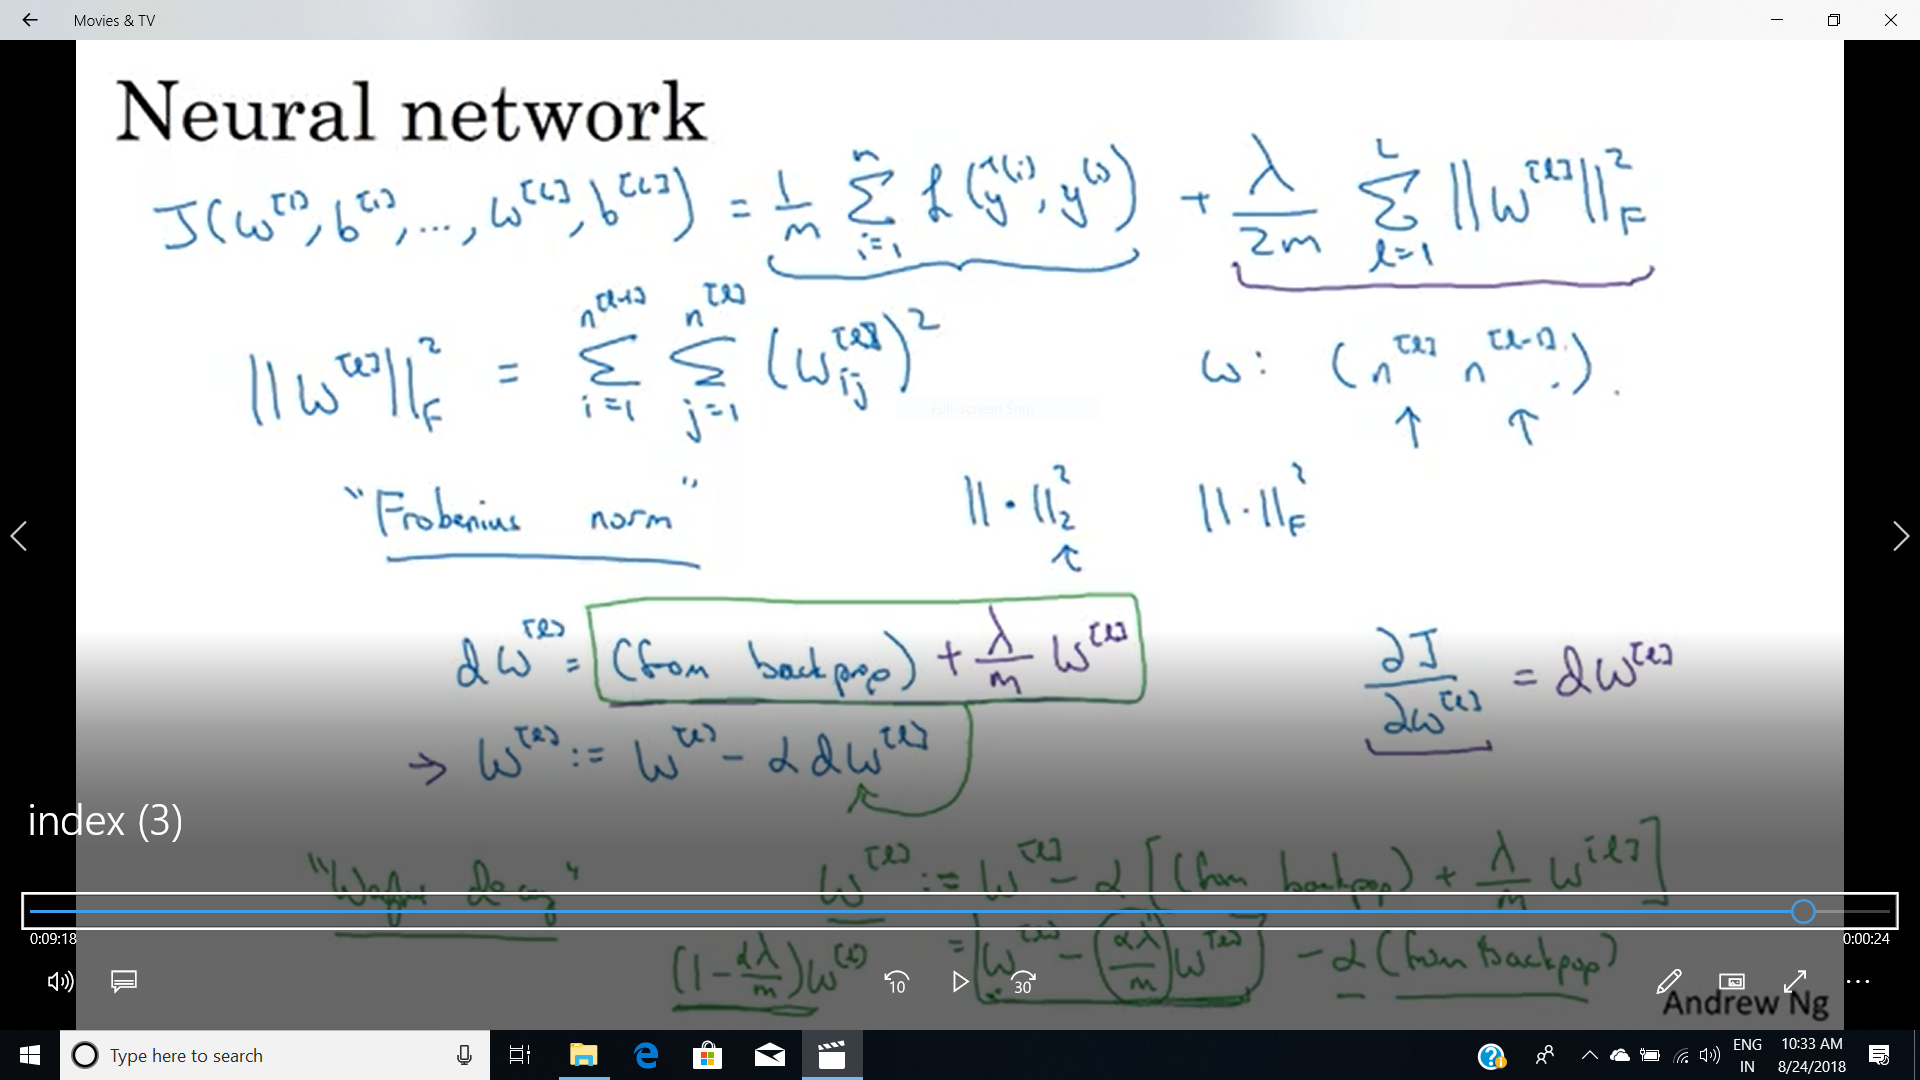 Movies & TV
Neural network
J(w^[1], b^[1], ..., w^[L], b^[L]) = 1/m Σ_{i=1}^{n} L(ŷ^(i), y^(i)) + λ/2m Σ_{l=1}^{L} ||w^[l]||_F^2
||w^[l]||_F^2 = Σ_{i=1}^{n^[l-1]} Σ_{j=1}^{n^[l]} (w_ij^[l])^2 w: (n^[l] n^[l-1]).
↑ ↑
"Frobenius norm" ||·||_2^2 ||·||_F^2
↑
dw^[l] = (from backprop) + λ/m w^[l] ∂J/∂w^[l] = dw^[l]
→ w^[l] := w^[l] - α dw^[l]
index (3)
"Weight decay" w^[l] := w^[l] - α [(from backprop) + λ/m w^[l]]
0:09:18 0:00:24
(1 - αλ/m) w^[l] = w^[l] - (αλ/m) w^[l] - α (from backprop)
10 30
Andrew Ng
Type here to search ENG 10:33 AM
IN 8/24/2018